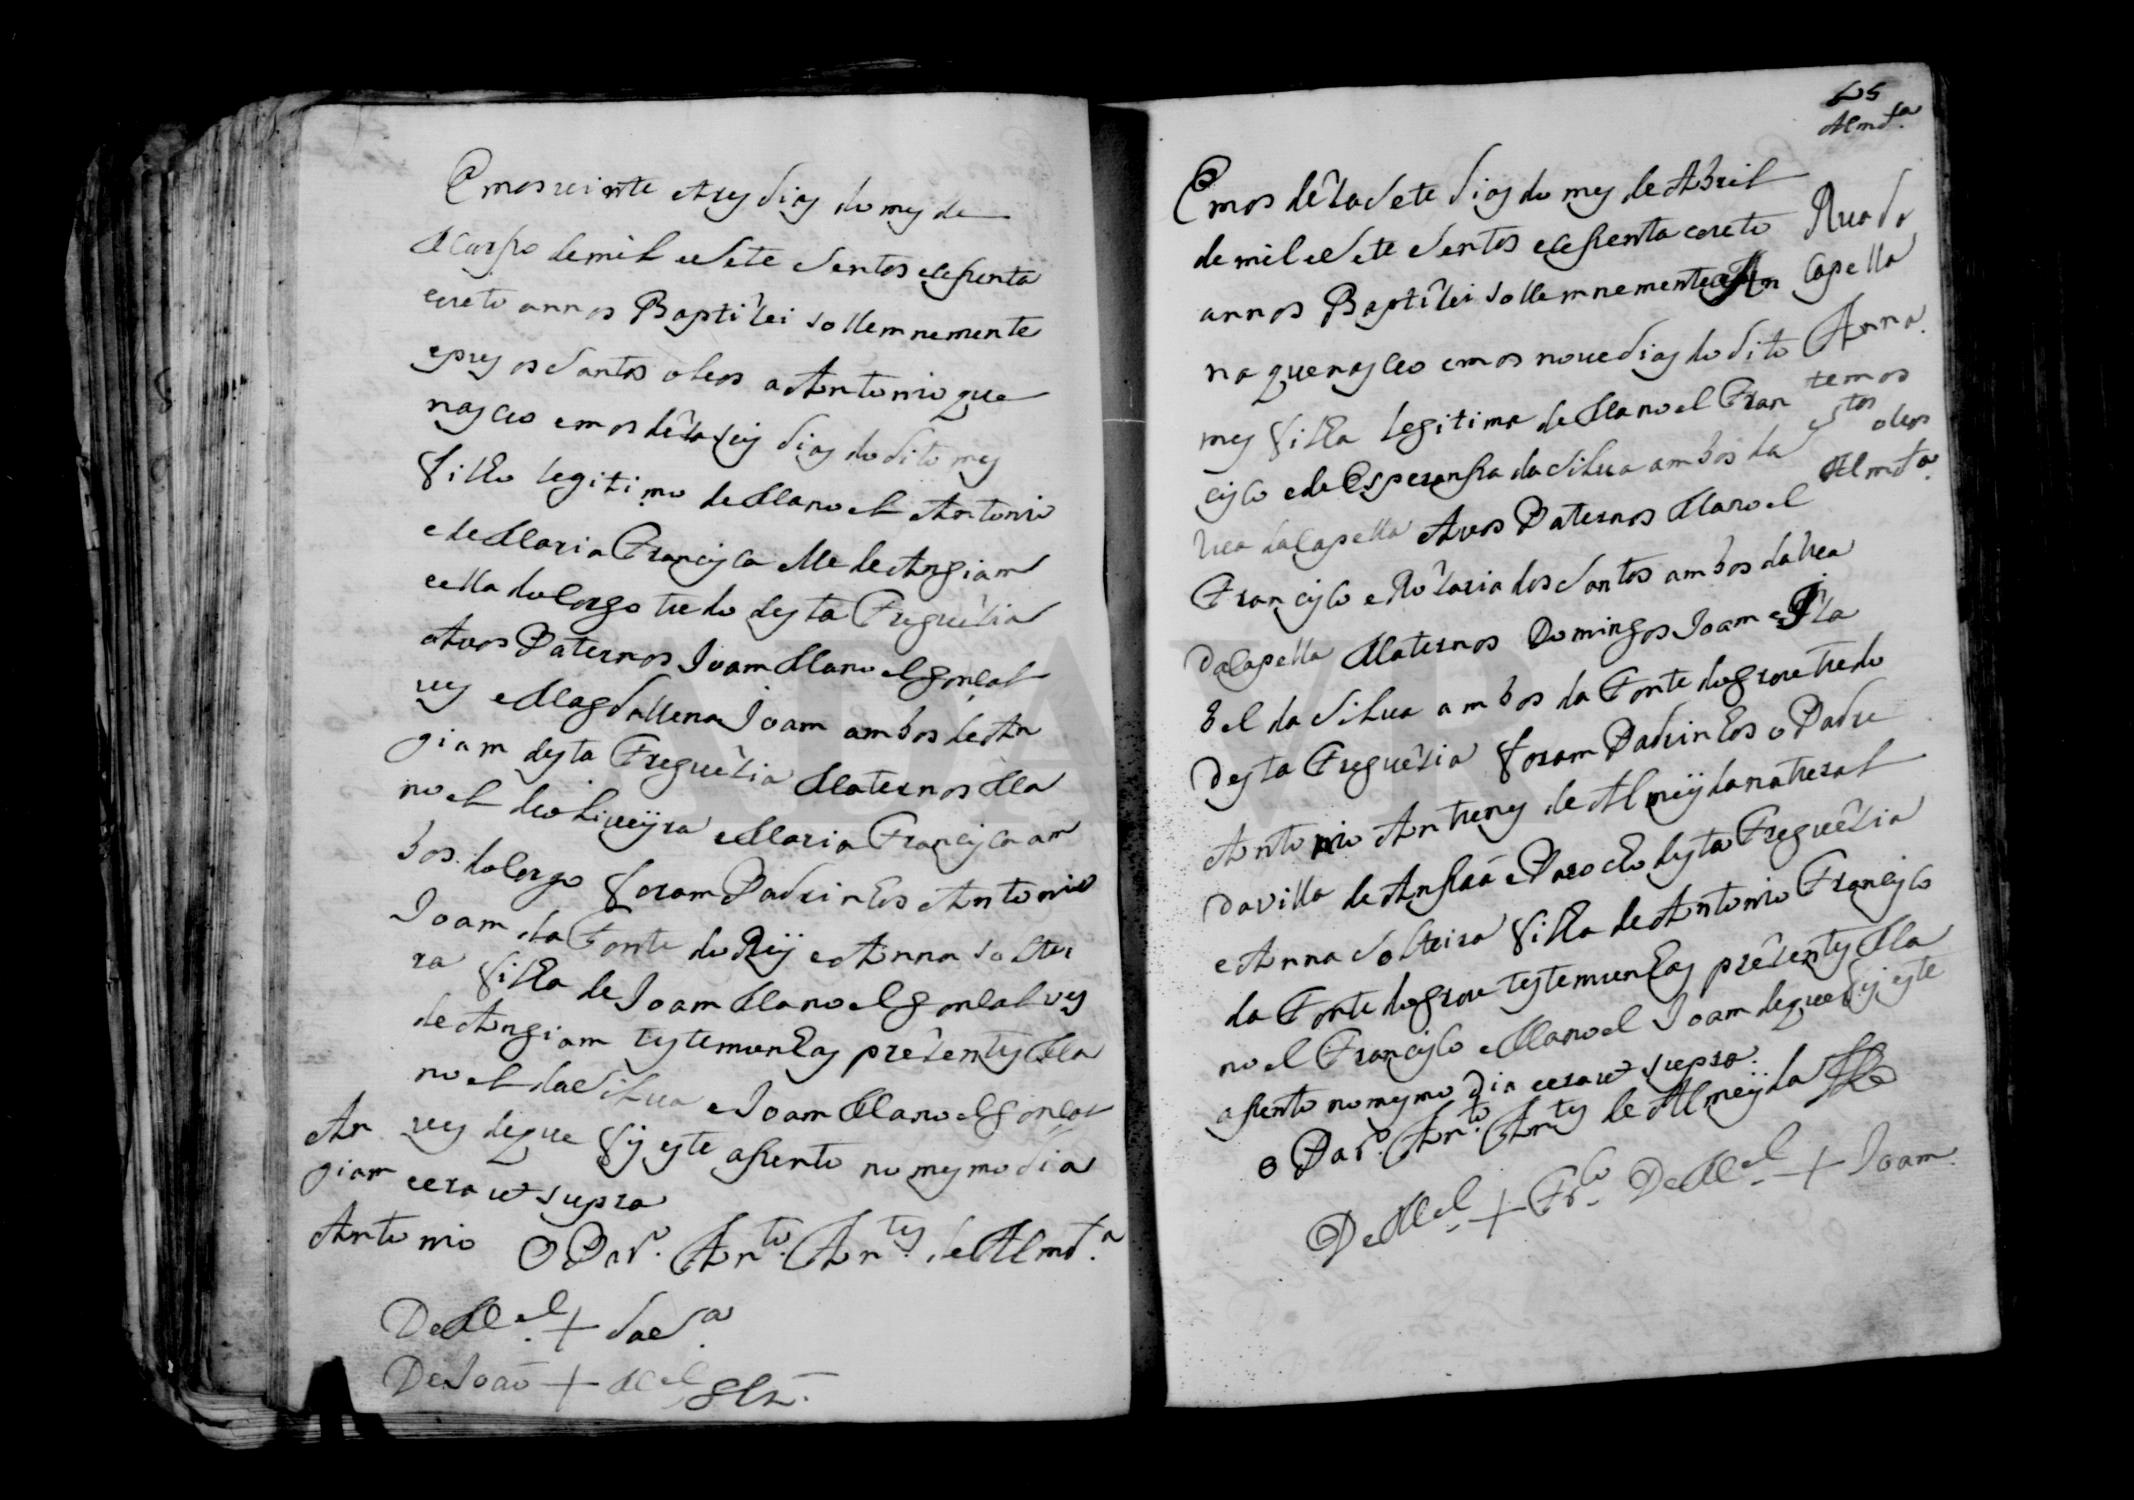 Emos vinte e trey dias do mes de
Março de mil e Sete Sentos e Secenta
e oreto annos Baptizei sollemnemente
e pus os Santos oleos a Antonio que
nasceo e mos dezaseis dias do dito mes
filho legitimo de Manoel Antonio
e de Maria Francisca elle de Angiam
e ella do Corgo tudo desta Freguezia
Avos Paternos Joam Manoel Gonsal
ves e Magdallena Joam ambos de An
giam desta Freguezia Maternos Ma
noel de oliveijra e Maria Francisca am
bos do Corgo foram Padrinhos Antonio
Joam da Fonte do Reij e Anna soltei
ra filha de Joam Manoel Gonsalves
de Angiam testemunhas prezentes Ma
noel da Silva e Joam Manoel Gonsal
ves de que fis este asento no mesmo dia
e era ut supra
An
giam
Antonio
O Par.º Ant.º Ant.es de Almd.ª
De M.el + da S.ª
De Joaõ + M.el Glz.
65
Almd.ª
Emos dezasete dias do mes de Abril
de mil e Sete Sentos e Secenta e oreto
annos Baptizei sollemnemente a An
na que nasceo e mos nove dias do dito
mes filha legitima de Manoel Fran
cisco e de Esperansa da Silva ambos da
Rua da Capella Avos Paternos Manoel
Francisco e Rozaria dos Santos ambos da Rua
da Capella Maternos Domingos Joam e Iza
bel da Silva ambos da Fonte do grou tudo
desta Freguezia foram Padrinhos o Padre
Antonio Antunes de Almeijda natural
da villa de Ansiaõ e Parocho desta Freguezia
e Anna Solteira filha de Antonio Francisco
da Fonte do grou testemunhas prezentes Ma
noel Francisco e Manoel Joam de que fis este
asento no mesmo dia e era ut supra.
O Par.º Ant.º Ant.es de Almeijda
De M.el + Fr.co De M.el + Joam.
Rua da
Capella
Anna.
temos
es tos
oleos
Almd.ª
ADAVR